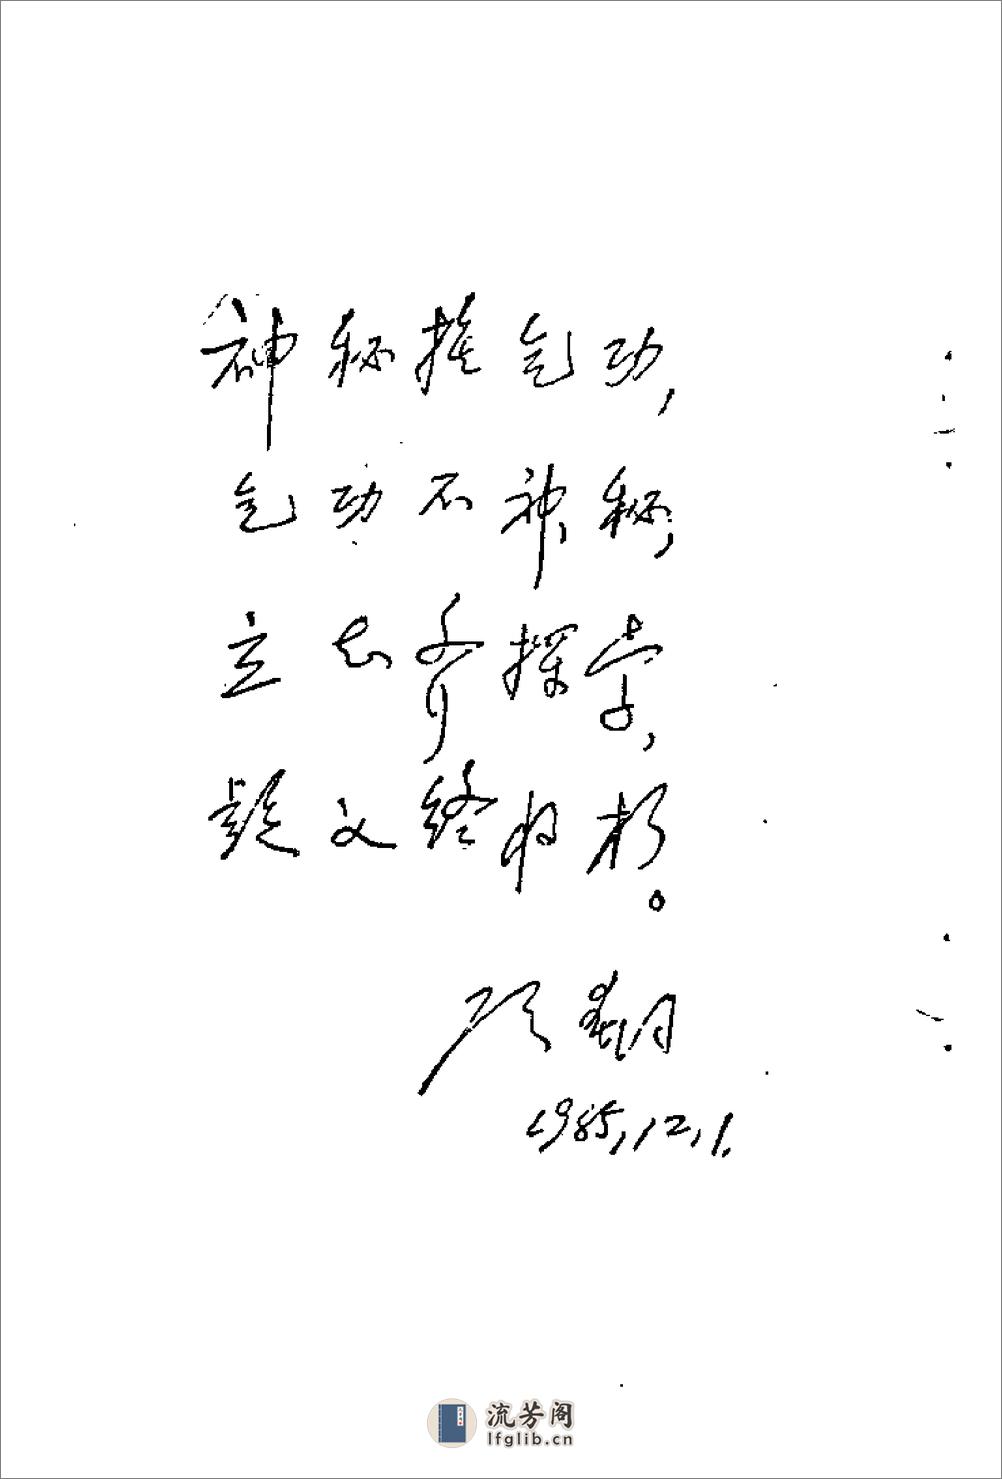 神秘推气功,
气功不神秘,
立志齐探索,
疑文终有析。
1985,12,1.
流芳阁
lfglib.cn